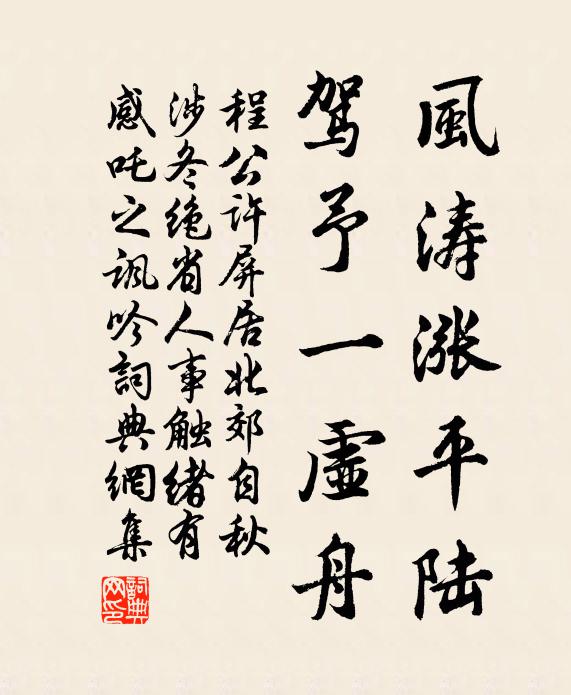 風涛漲平陆
驾予一虚舟
程公许屏居北郊自秋
涉冬绝省人事触绪有
感吒之讽吟詞典網集
詞典網印